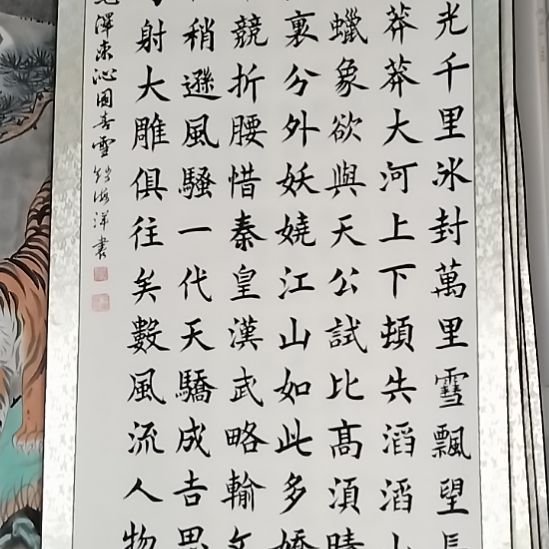 光千里冰封萬里雪飄望長
莽莽大河上下頓失滔滔山
蠟象欲與天公試比高須晴
裹分外妖嬈江山如此多嬌
競折腰惜秦皇漢武略輸文
稍遜風騷一代天驕成吉思
射大雕俱往矣數風流人物
毛澤東沁園春雪 海洋書